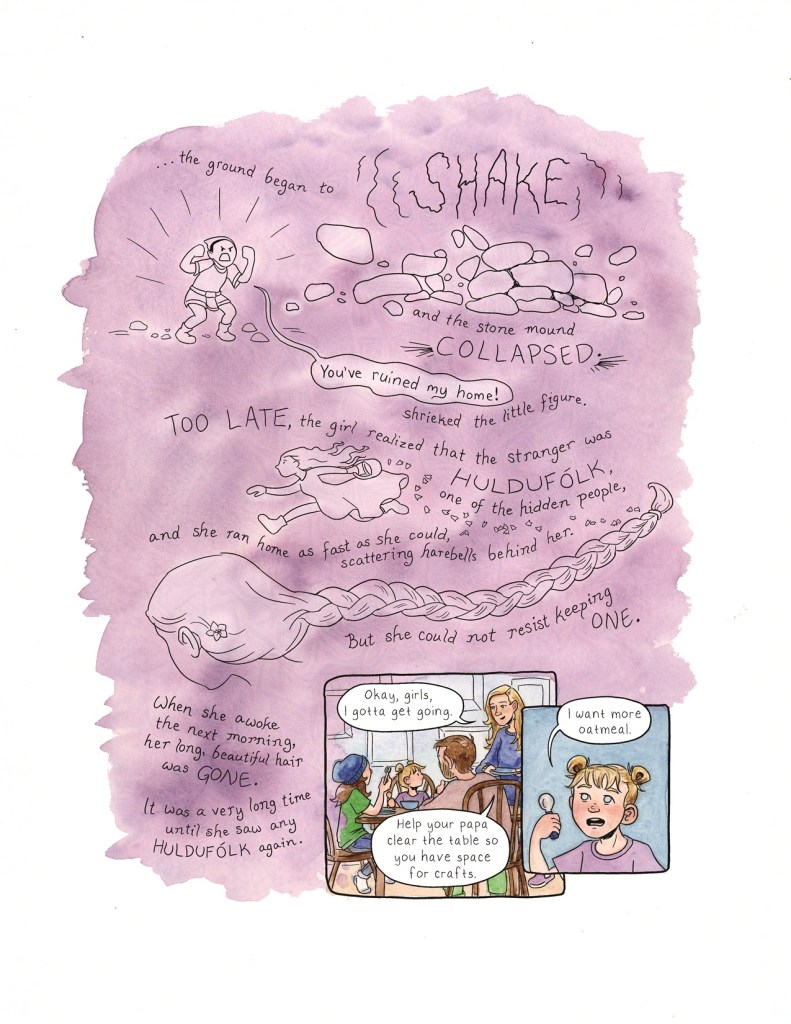 ...the ground began to
SHAKE
and the stone mound
COLLAPSED.
You've ruined my home!
shrieked the little figure.
TOO LATE, the girl realized that the stranger was
HULDUFÓLK,
one of the hidden people,
and she ran home as fast as she could,
scattering harebells behind her.
But she could not resist keeping
ONE.
When she awoke
the next morning,
her long, beautiful hair
was GONE.
It was a very long time
until she saw any
HULDUFÓLK again.
Okay, girls,
I gotta get going.
Help your papa
clear the table so
you have space
for crafts.
I want more
oatmeal.